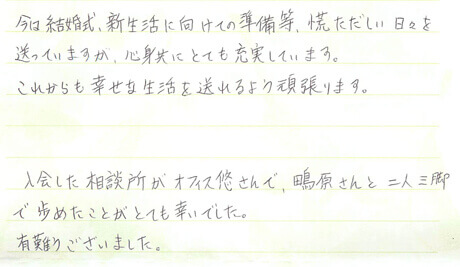 今は結婚式、新生活に向けての準備等、慌ただしい日々を
送っていますが、心身共にとても充実しています。
これからも幸せな生活を送れるよう頑張ります。
入会した相談所がオフィス悠さんで、鴨原さんと二人三脚
で歩めたことがとても幸いでした。
有難うございました。